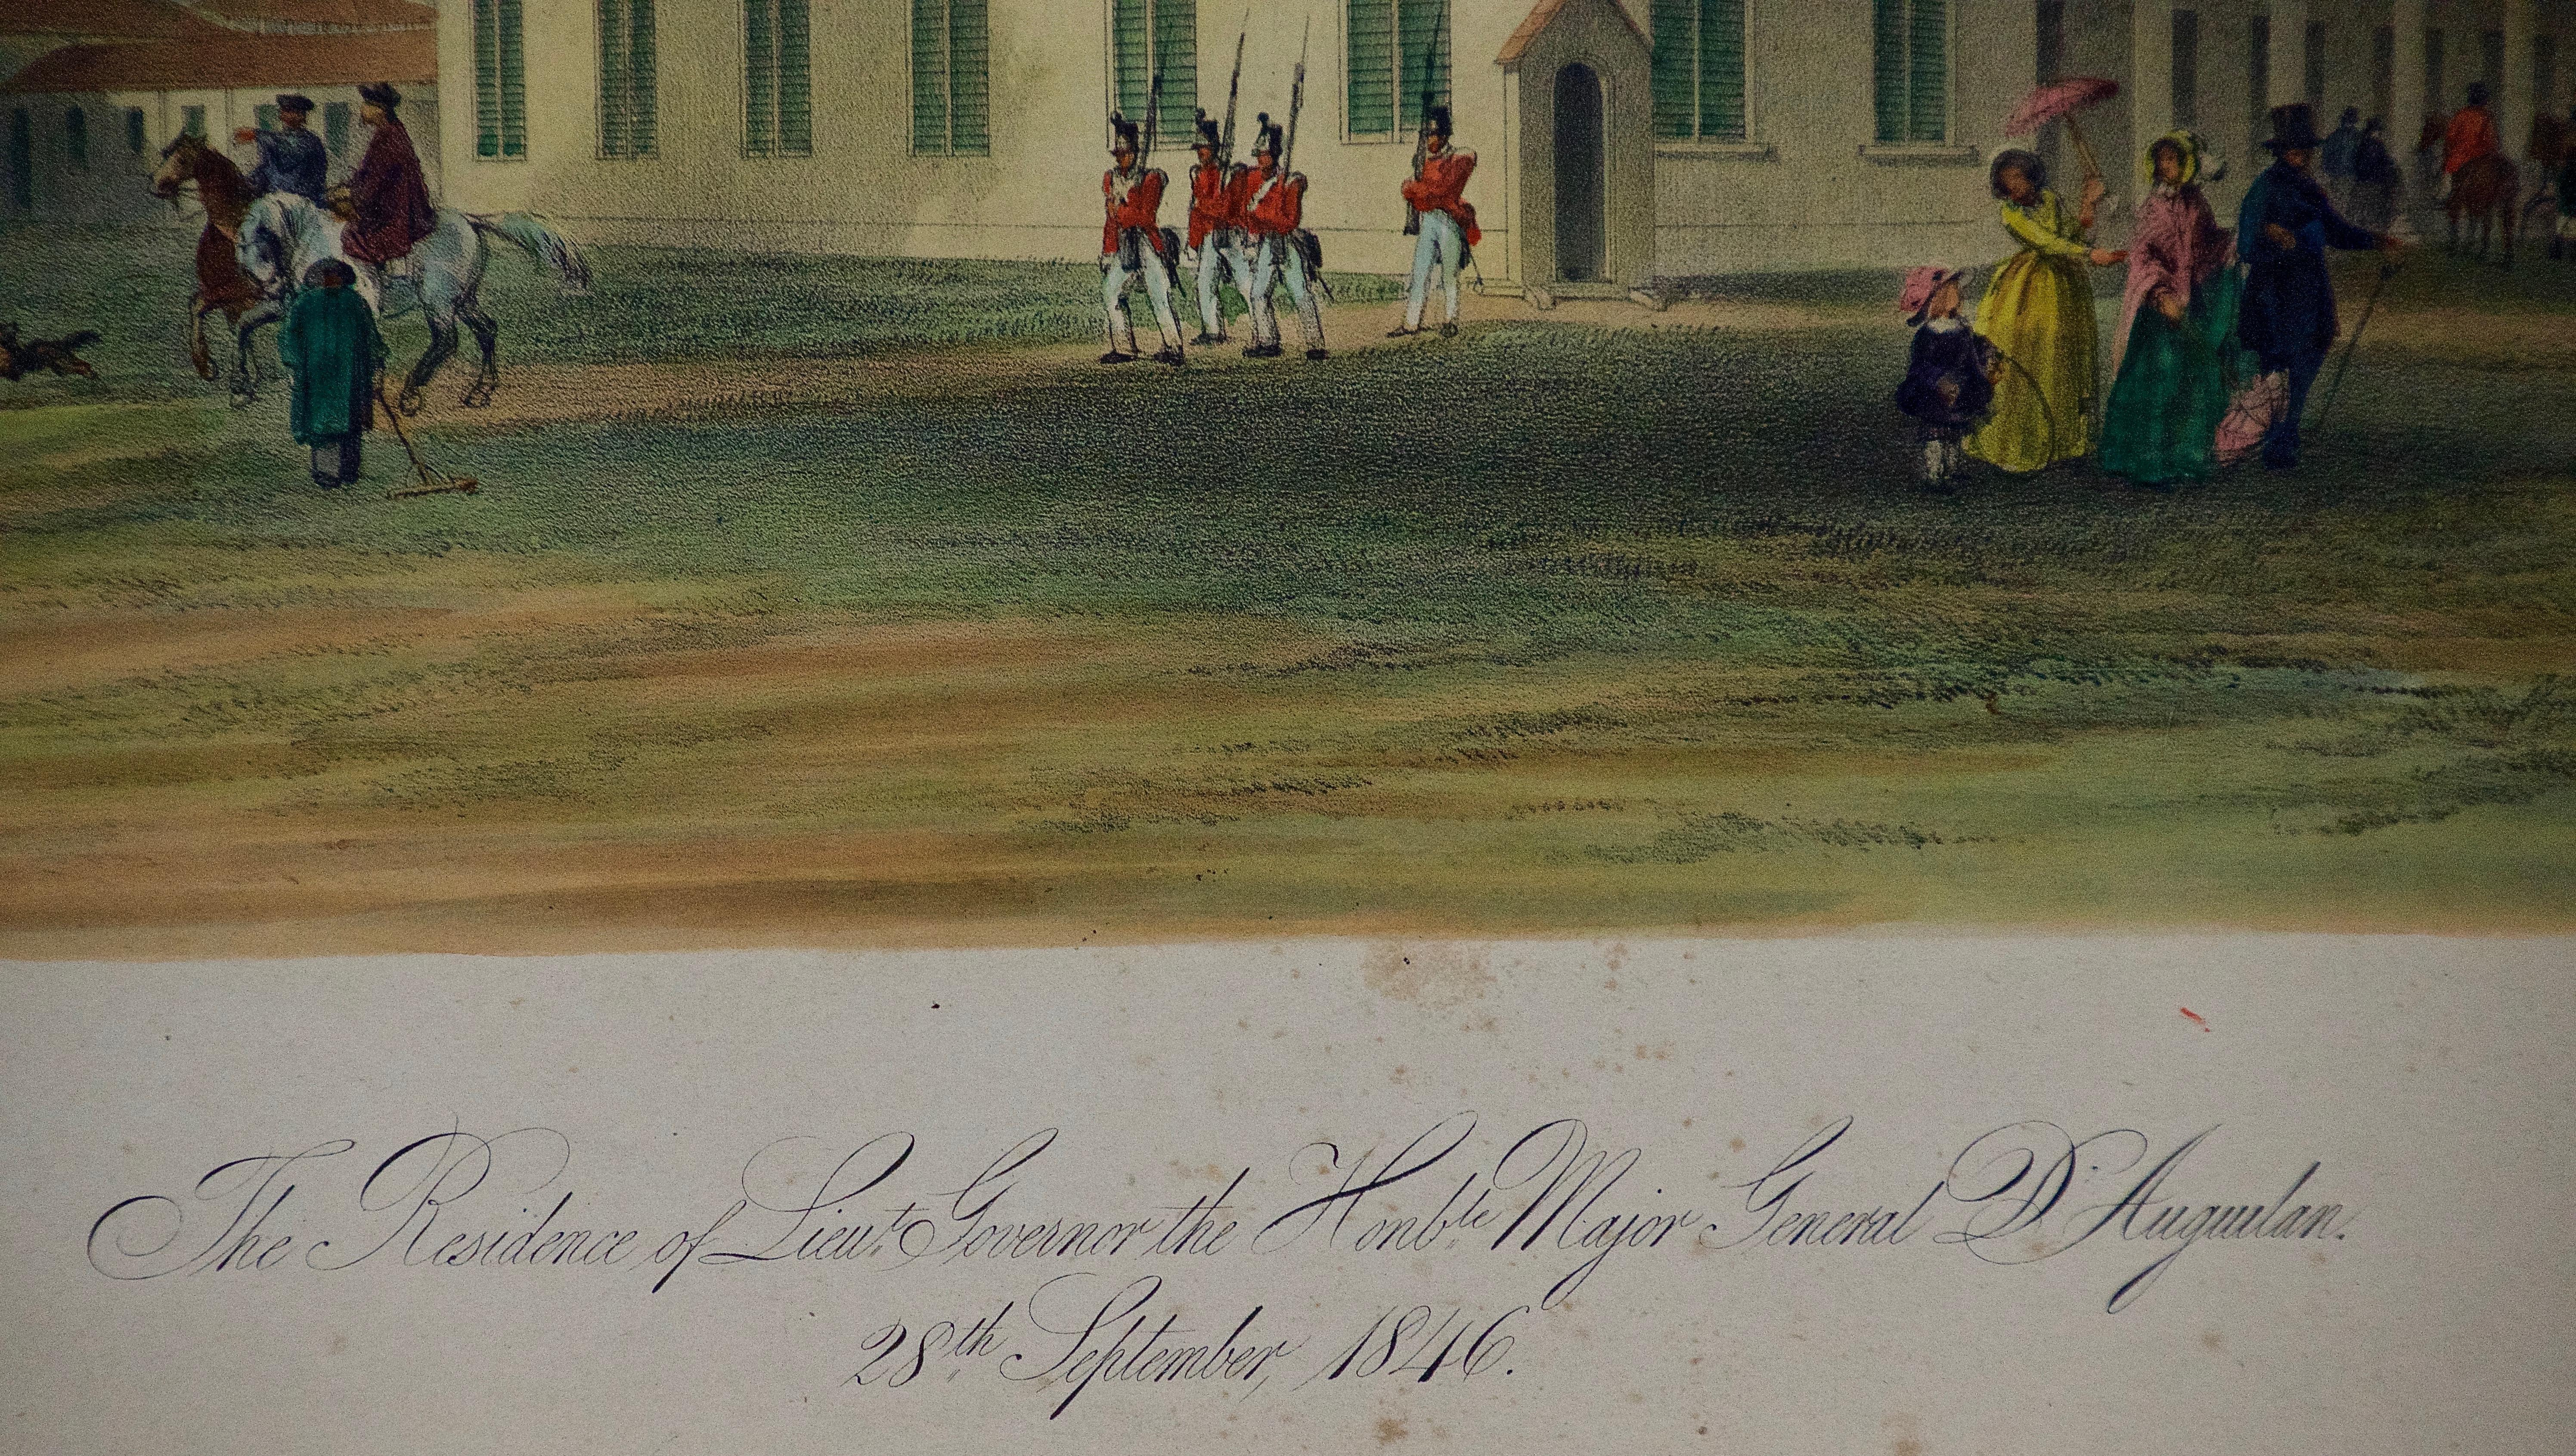 The Residence of Lieut. Governor the Honble. Major General D'Auguilan.
28th September, 1846.